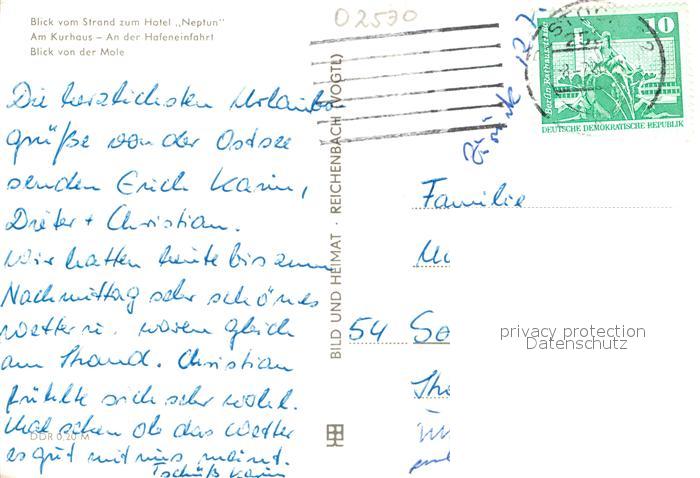 Blick vom Strand zum Hotel „Neptun"
Am Kurhaus – An der Hafeneinfahrt
Blick von der Mole
02530
Die herzlichsten Urlaubs
grüße von der Ostsee
senden Erich Karin,
Dieter + Christian.
Wir hatten heute bis zum
Nachmittag sehr schönes
Wetter u. waren gleich
am Strand. Christian
fühlte sich sehr wohl.
Mal sehen ob das Wetter
es gut mit uns meint.
Tschüß Karin
DDR 0,20 M
BILD UND HEIMAT · REICHENBACH (VOGTL)
zurück 12.7.
10
Berlin-Rathausstraße
DEUTSCHE DEMOKRATISCHE REPUBLIK
Familie
54 So
privacy protection
Datenschutz